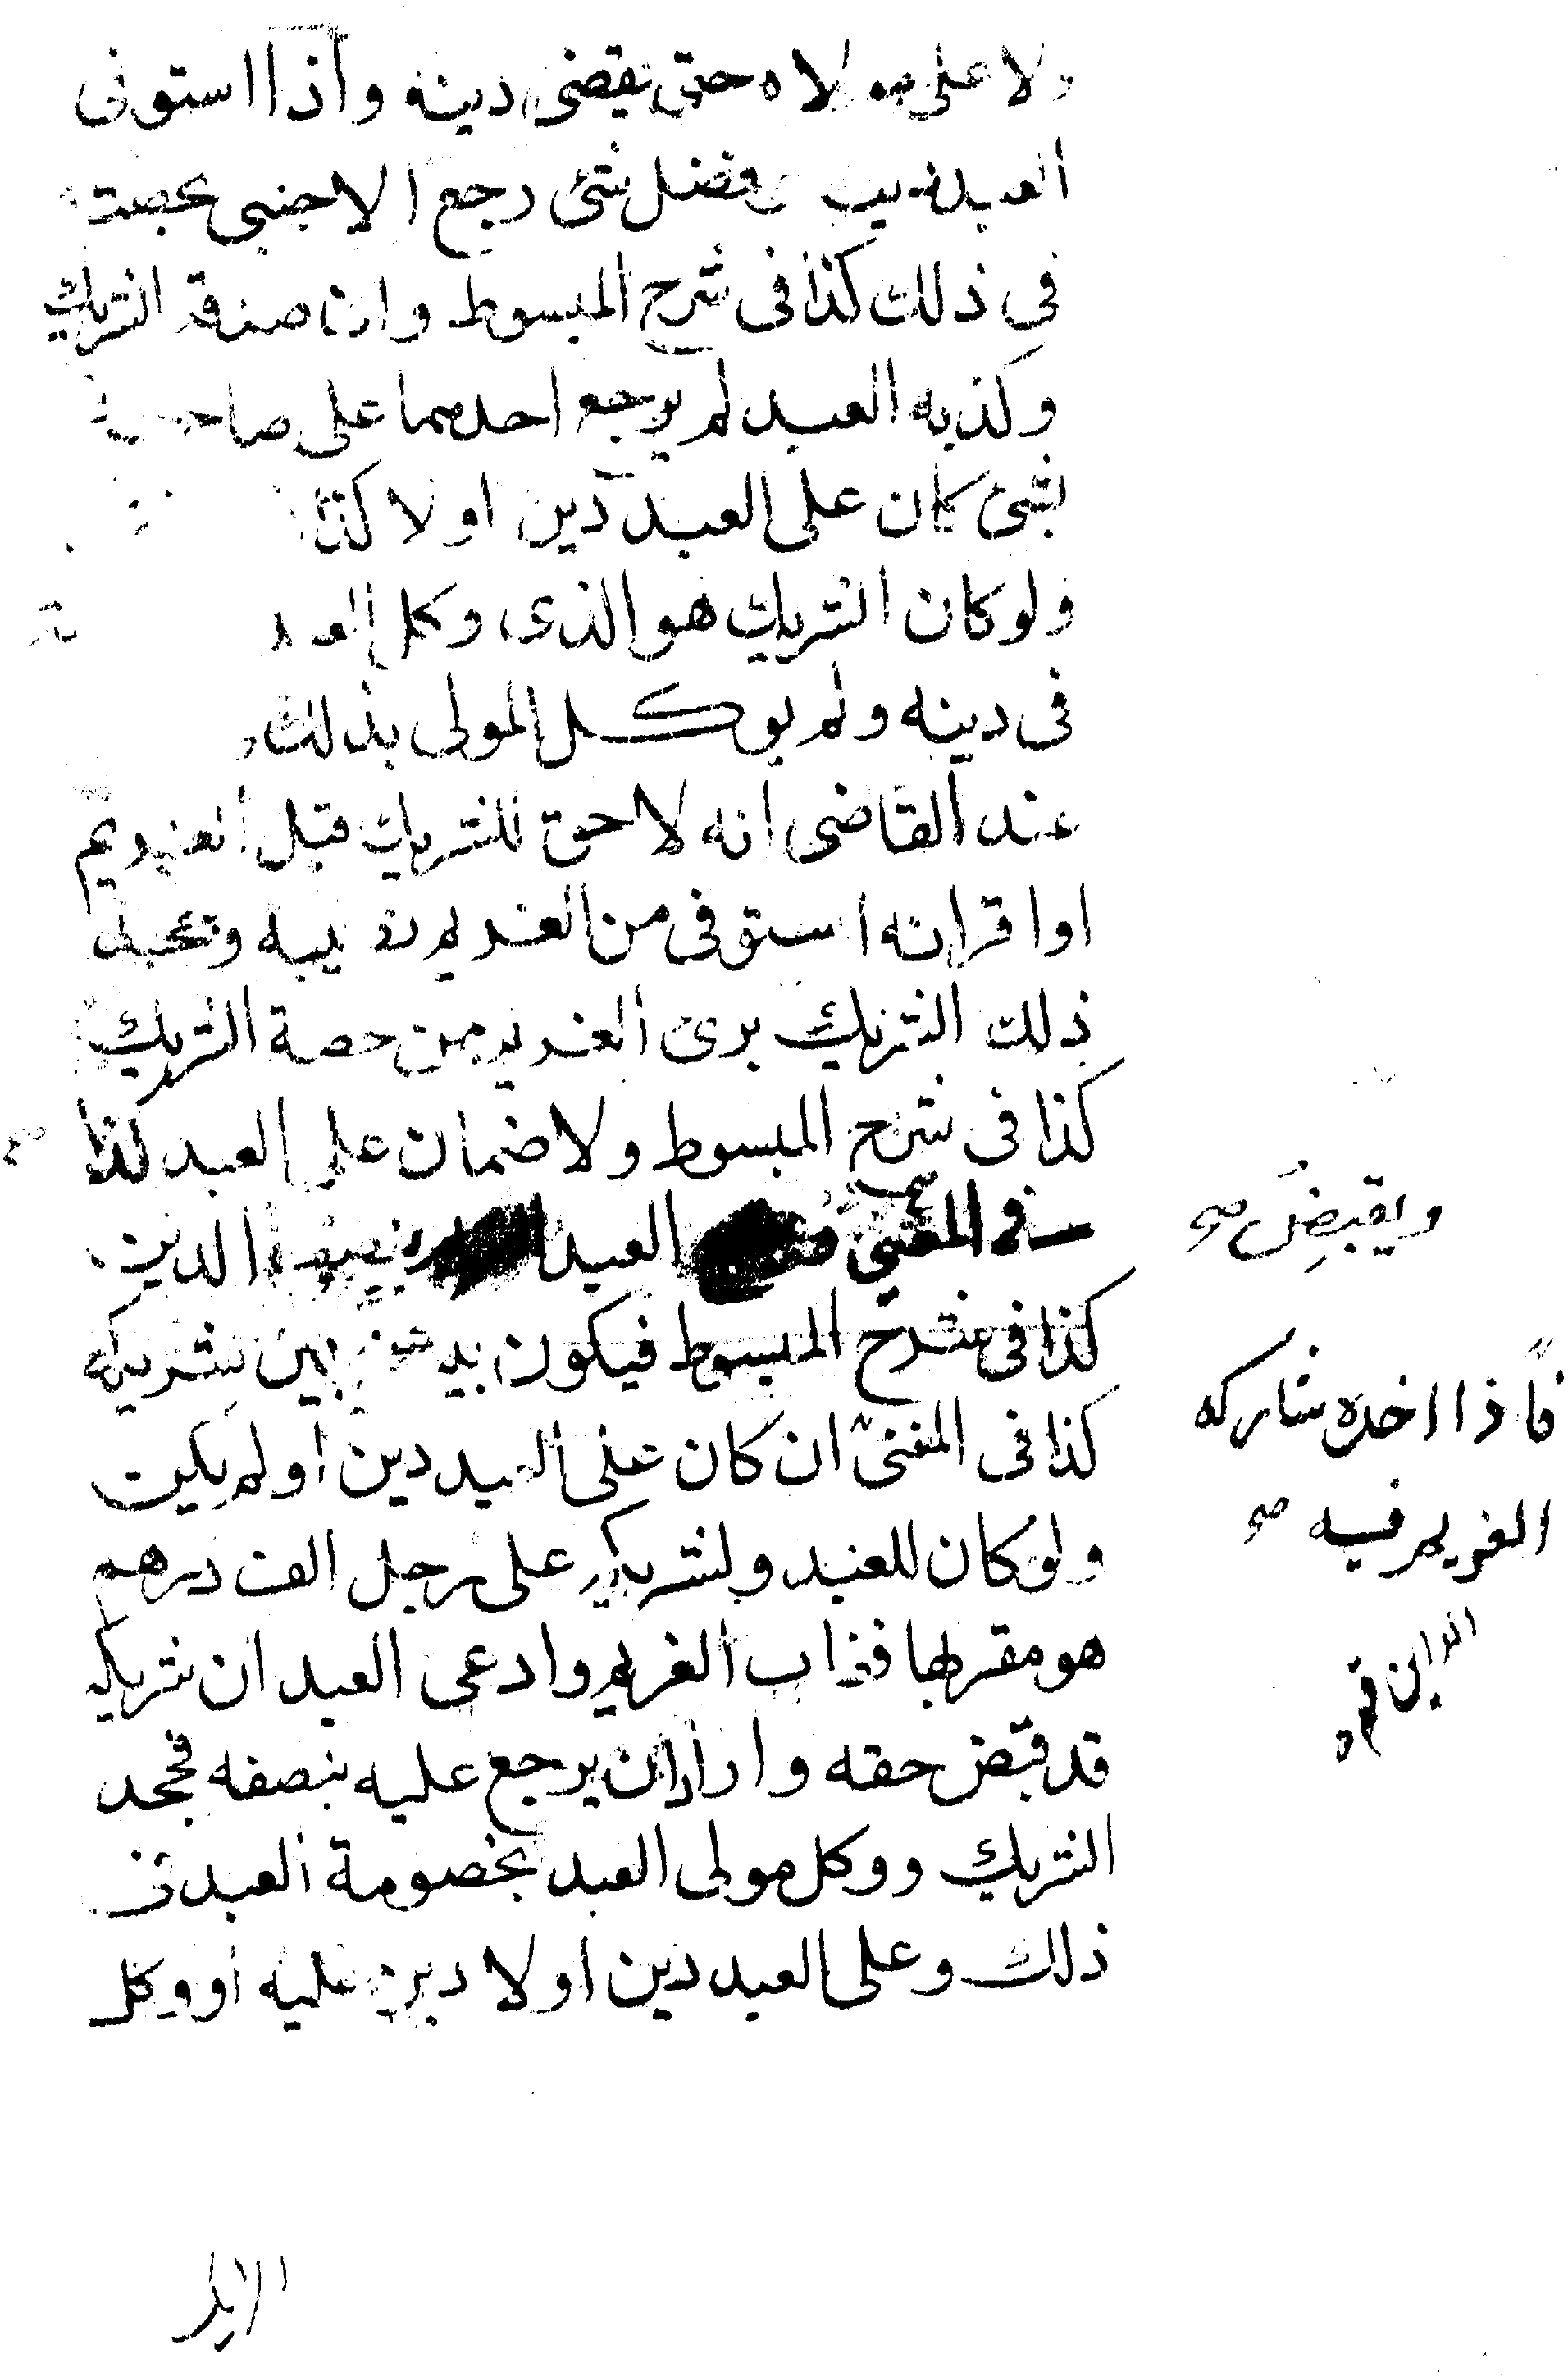 ولا على مولاه حتى يقضى دينه واذا استوفى
العبد فضل شئ رجع الاجنبى بحصته
فى ذلك كذا فى شرح المبسوط وان صدقه الشريك
وكذبه العبد لم يرجع احدهما على صاحبه
بشئ كان على العبد دين او لا كذا
ولو كان الشريك هو الذى وكل العبد
فى دينه ولم يوكل المولى بذلك
عند القاضى انه لا حق للشريك قبل الغريم
او اقر انه استوفى من الغريم نصيبه وجحد
ذلك الشريك برئ الغريم من حصة الشريك
كذا فى شرح المبسوط ولا ضمان على العبد كذا
فى المغنى العبد نصف الدين
ويقبض صح
كذا فى شرح المبسوط فيكون بينه وبين شريكه
كذا فى المغنى ان كان على العبد دين او لم يكن
فاذا اخذه شاركه
الغريم فيه صح
ولو كان للعبد ولشريكه على رجل الف درهم
هو مقر بها فغاب الغريم وادعى العبد ان شريكه
قد قبض حقه واراد ان يرجع عليه بنصفه فجحد
الشريك ووكل مولى العبد بخصومة العبد فى
ذلك وعلى العبد دين او لا دين عليه او وكل